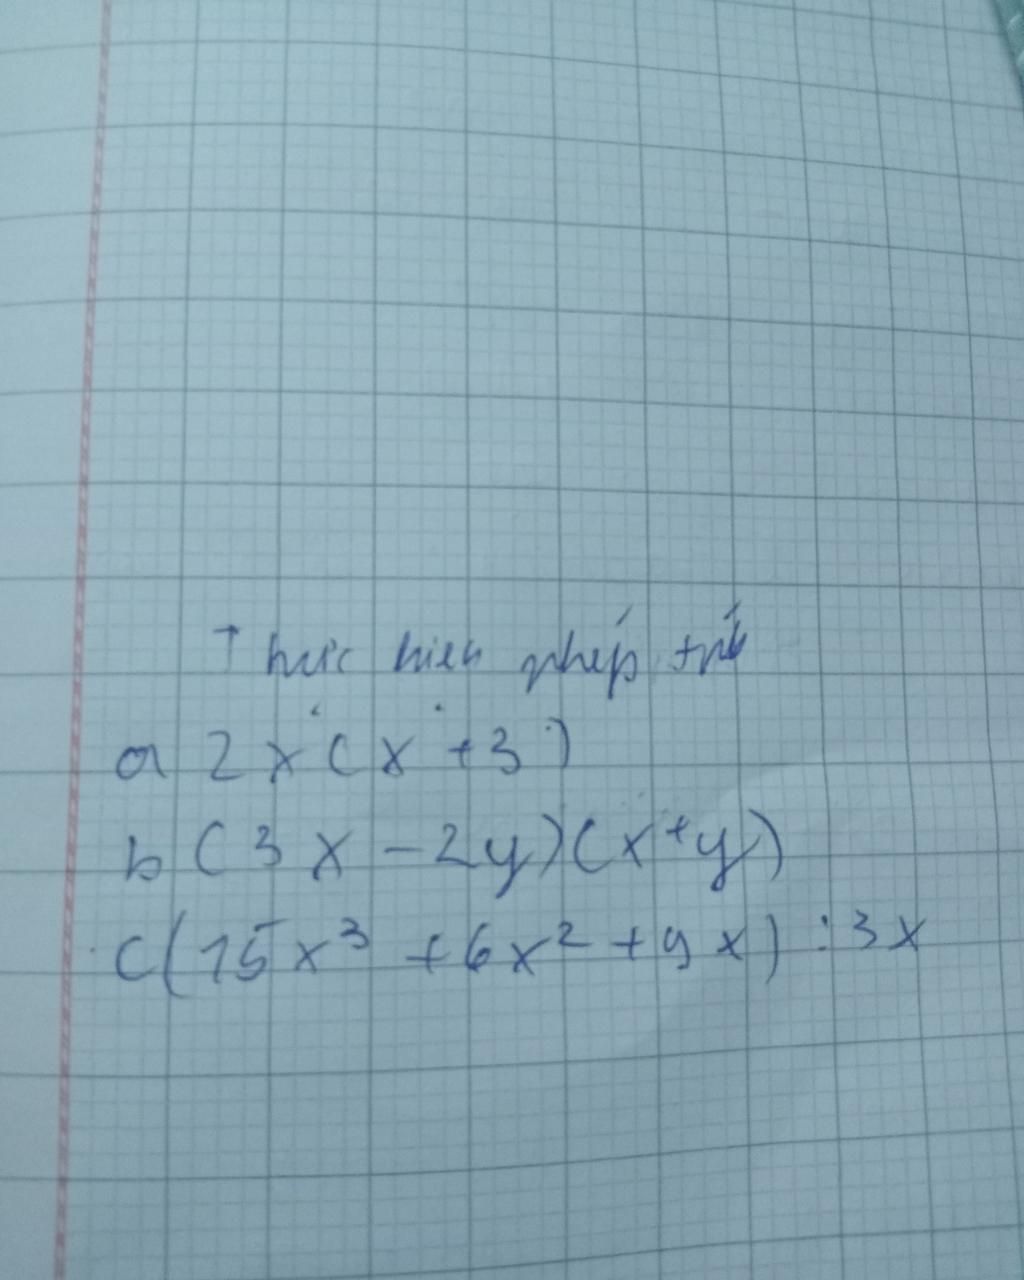 Thực hiện phép
a 2x(x+3)
b (3x-2y)(x+y)
c(15x³+6x²+9x):3x